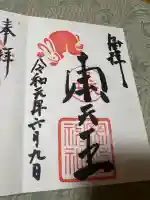 奉拝
東天王
令和元年六月九日
奉拝